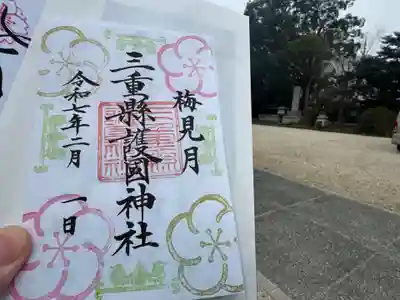 梅見月
三重縣護國神社
令和七年二月
一日